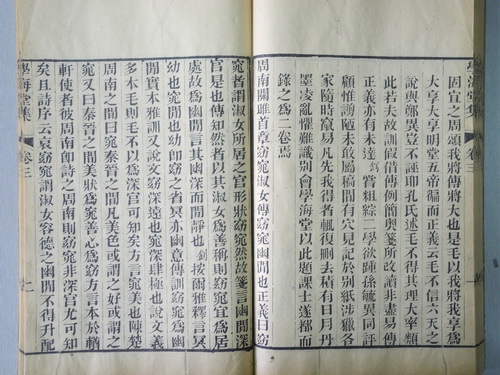 因宜之周頌我將傳將大也是毛以我將我享爲
大享大享明堂五帝徧而正義云毛不信六天之
說與鄭異豈不誣耶孔氏述毛不得其理大率類
此若夫故訓假借傳例簡奧箋所改讀非盡易傳
正義亦有未達爲嘗綜二學欲踵孫毓異同評
顧惟謭陋未敢屬稿閒有穴見記於别紙涉獵各
家隨時竄易凡先我得者輒復刪去積有日月丹
墨淩亂懼難識别會學海堂以此題課士遂鄀而
錄之爲二卷焉
周南關雎首章窈窕淑女傳窈窕幽閒也正義曰窈
窕者謂淑女所居之宫形狀窈窕然故箋言幽閒深
宫是也傳知然者以其淑女巳爲善稱則窈窕宜爲居
處故爲幽閒言其幽深而閒靜也 按爾雅釋言冥
幼也窕閒也幼卽窈之省冥亦幽意傳訓窈窕爲幽
閒實本雅訓又說文窈深遠也窕深肆極也說文義
多本毛則毛不以爲深宫可知矣方言窕美也陳楚
周南之閒曰窕秦晉之閒凡美色或謂之好或謂之
窕又曰秦晉之閒美狀爲窕美心爲窈方言本於輶
軒使者彼周南卽詩之周南則窈窕非深宫尤可知
矣且詩序云哀窈窕謂淑女容德之幽閒不得升配
學海堂集
卷三
學海堂集
卷三
二